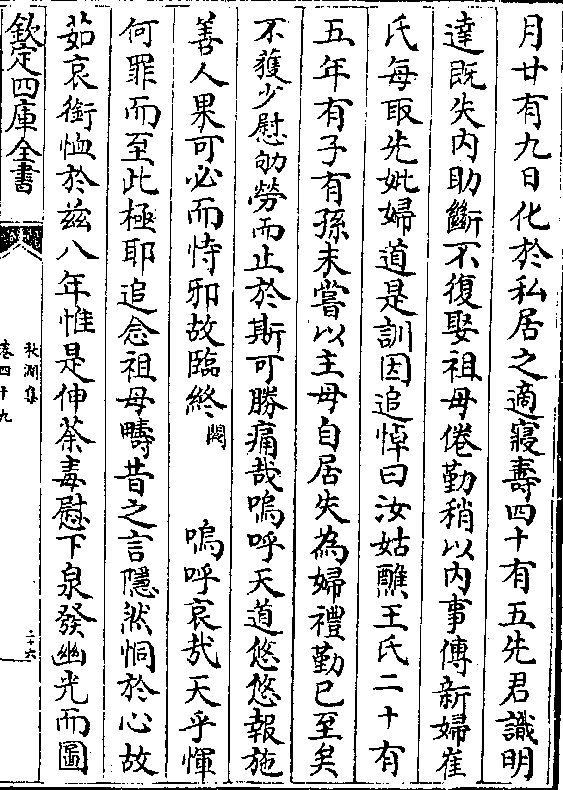 月廿有九日化於私居之適寢壽四十有五先君識明
達既失内助斷不復娶祖母倦勤稍以内事傳新婦崔
氏每取先妣婦道是訓因追悼曰汝姑醮王氏二十有
五年有子有孫未嘗以主母自居失為婦禮勤已至矣
不獲少慰劬勞而止於斯可勝痛哉嗚呼天道悠悠報施
善人果可必而恃邪故臨終闕　　嗚呼哀哉天乎惲
何罪而至此極耶追念祖母疇昔之言隱然恫於心故
茹哀銜恤於兹八年惟是伸荼毒慰下泉發幽光而圖
欽定四庫全書
秋澗集
卷四十九
二十六